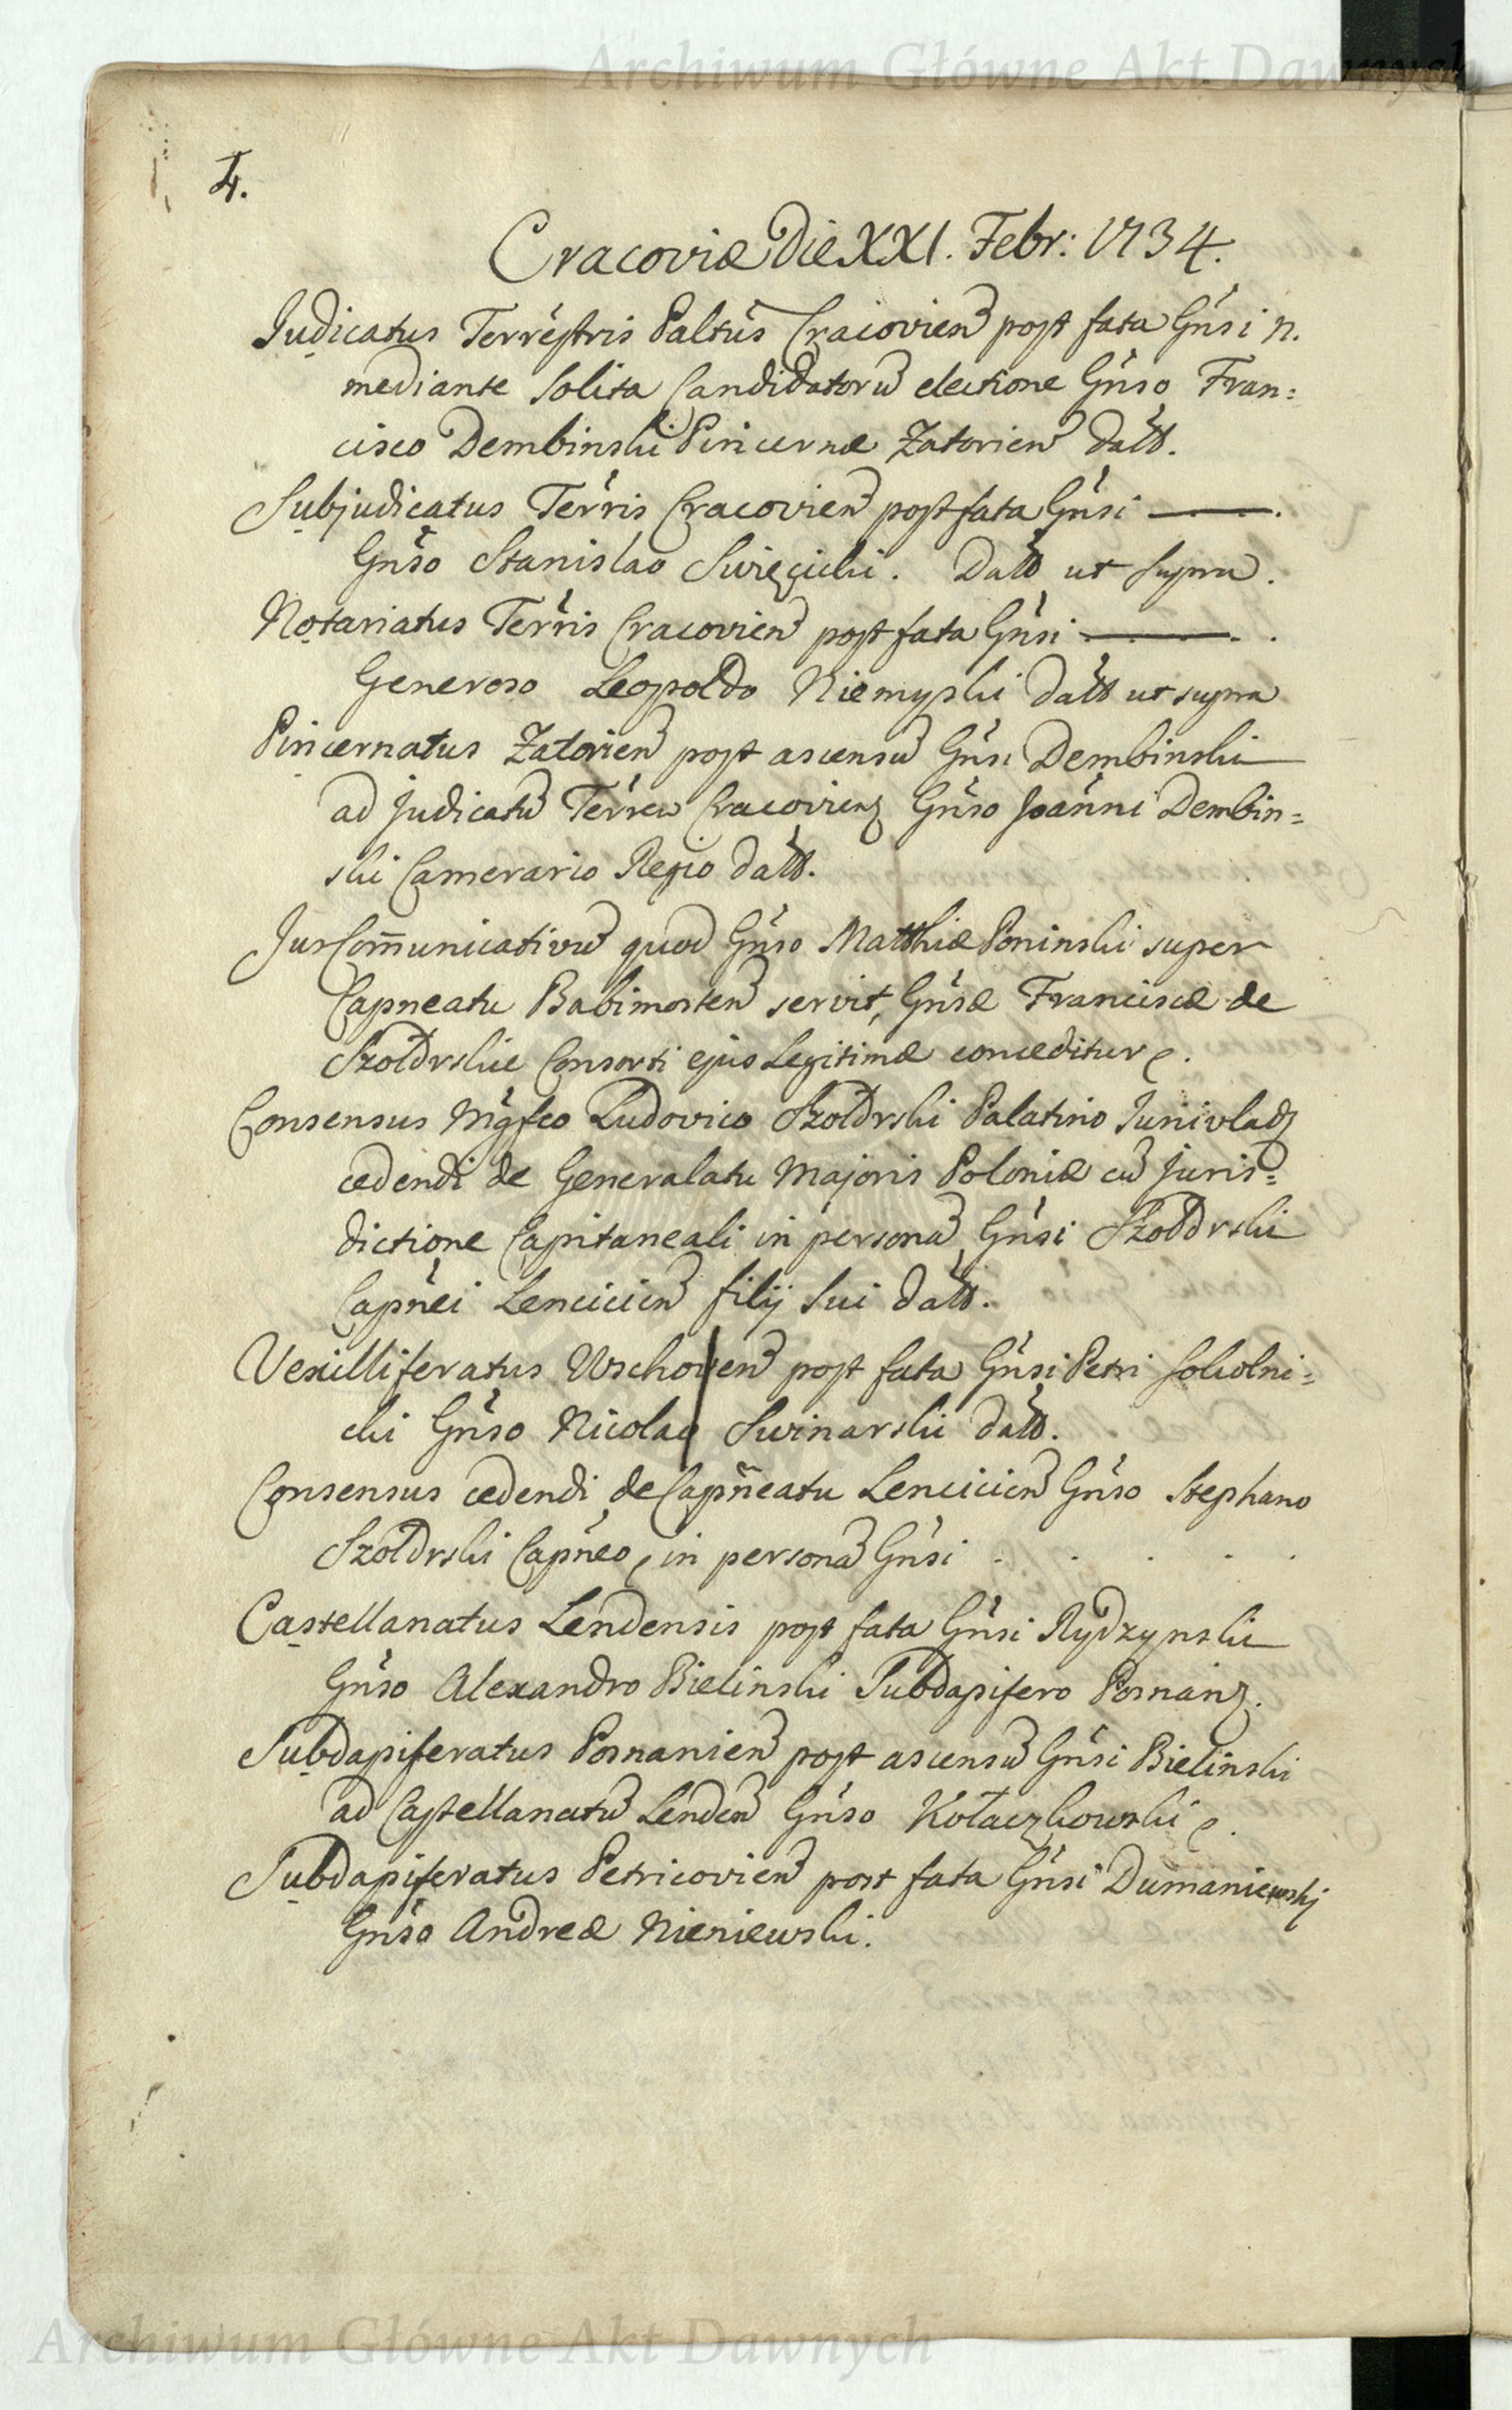 Archiwum Główne Akt Dawnych
4.
Cracoviæ Die XXI. Febr: 1734.
Judicatus Terrestris Paltūs Cracovien post fata Gnsi n.
mediante solita Candidatorū electione Gnso Fran=
cisco Dembinski Pincernæ Zatorien datt.
Subjudicatus Terris Cracovien post fata Gnsi ———.
Gnso Stanislao Swięcicki. Datt ut supra.
Notariatus Terris Cracovien post fata Gnsi ———. .
Generoso Leopoldo Niemyski datt ut supra
Pincernatus Zatorien post ascensū Gnsi Dembinski
ad judicatū Terren Cracovien Gnso Joanni Dembin=
ski Camerario Regio datt.
Jus Com̄unicativū quod Gnso Matthiæ Poninski super
Capneatu Babimosten servit, Gnsæ Franciscæ de
Szoldrskie Consorti ejus Legitimæ conceditur.
Consensus Mgfco Ludovico Szoldrski Palatino Junivlad
cedendi de Generalatu Majoris Poloniæ cū juris=
dictione Capitaneali in personā Gnsi Szoldrski
Capnei Lencicien filij sui datt.
Vexilliferatus Wschoven post fata Gnsi Petri Sokolni=
cki Gnso Nicolao Swinarski datt.
Consensus cedendi de Capneatu Lencicien Gnso Stephano
Szoldrski Capneo, in personā Gnsi . . . . .
Castellanatus Lendensis post fata Gnsi Rydzynski
Gnso Alexandro Bielinski Subdapifero Posnan.
Subdapiferatus Posnanien post ascensū Gnsi Bielinski
ad Castellanatū Lenden Gnso Kołaczkowski.
Subdapiferatus Petricovien post fata Gnsi Dumaniewskj
Gnso Andreæ Nieniewski.
Archiwum Główne Akt Dawnych